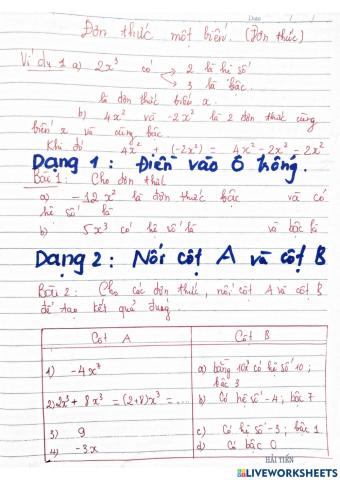 Đơn thức một biến. (Đơn thức)
Ví dụ 1 a) 2x³ có → 2 là hệ số
→ 3 là bậc.
là đơn thức biến x.
b) 4x² và -2x² là 2 đơn thức cùng
biến x và cùng bậc.
Khi đó 4x² + (-2x²) = 4x² - 2x² = 2x²
Dạng 1: Điền vào Ô trống.
Bài 1: Cho đơn thức
a) -12x² là đơn thức bậc và có
hệ số là
b) 5x³ có hệ số là và bậc là
Dạng 2: Nối cột A và cột B
Bài 2: Cho các đơn thức, nối cột A và cột B
để tạo kết quả đúng.
Cột A Cột B
1) -4x⁷ a) bằng 10x³ có hệ số 10;
bậc 3
2) 2x³ + 8x³ = (2+8)x³ = .... b) Có hệ số -4; bậc 7
3) 9 c) Có hệ số -3; bậc 1
4) -3x d) Có bậc 0
HẢI TIẾN
LIVEWORKSHEETS